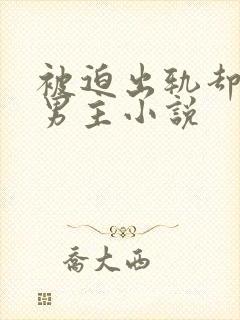 被迫出轨却
男主小説
喬大西